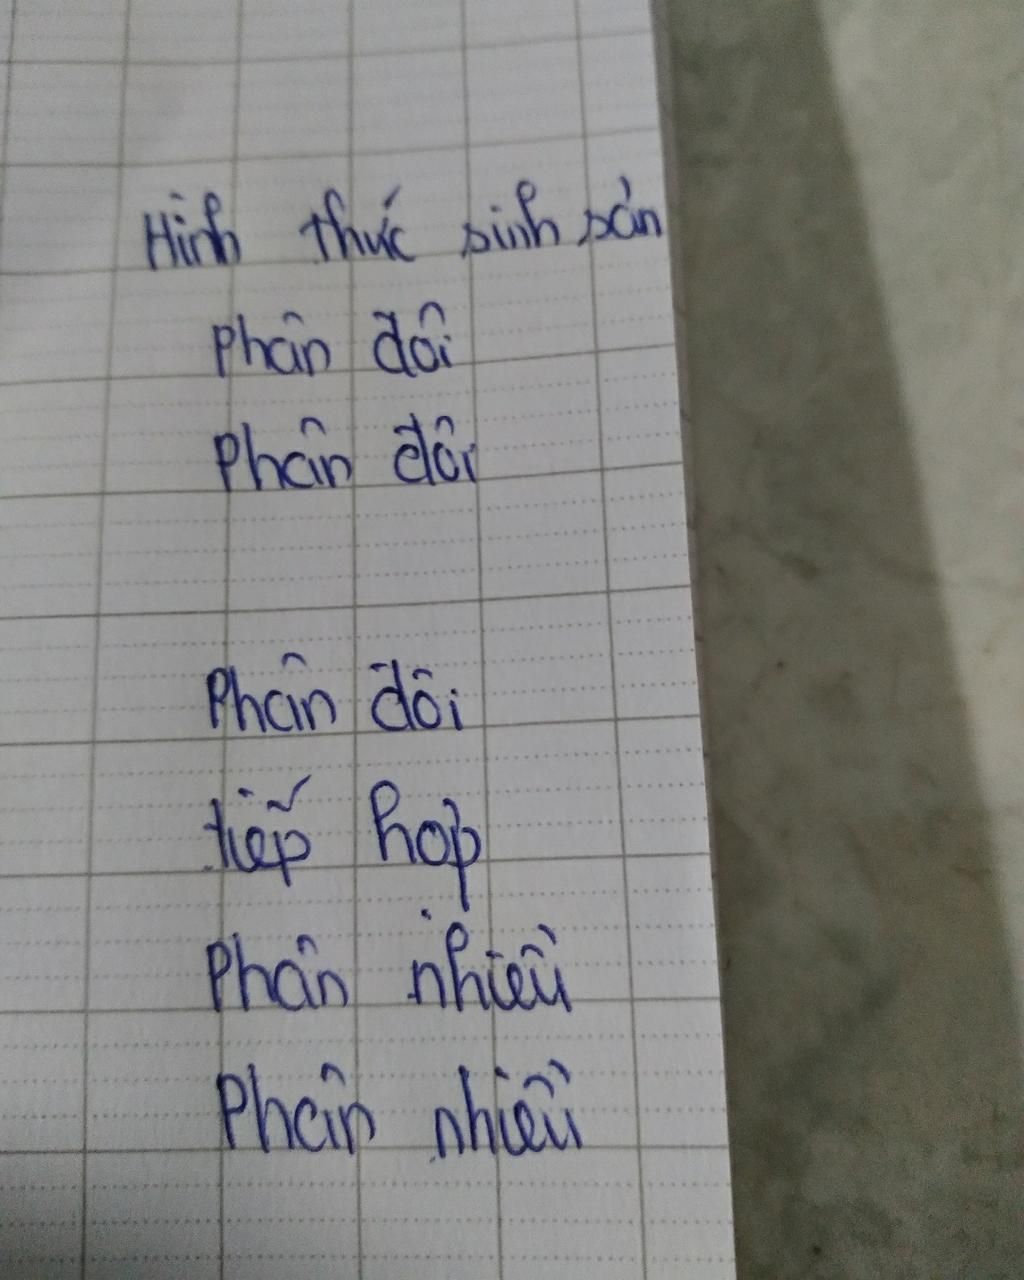 Hình thức sinh sản
Phân đôi
Phân đôi
Phân đôi
tiếp hợp
Phân nhiều
Phân nhiều